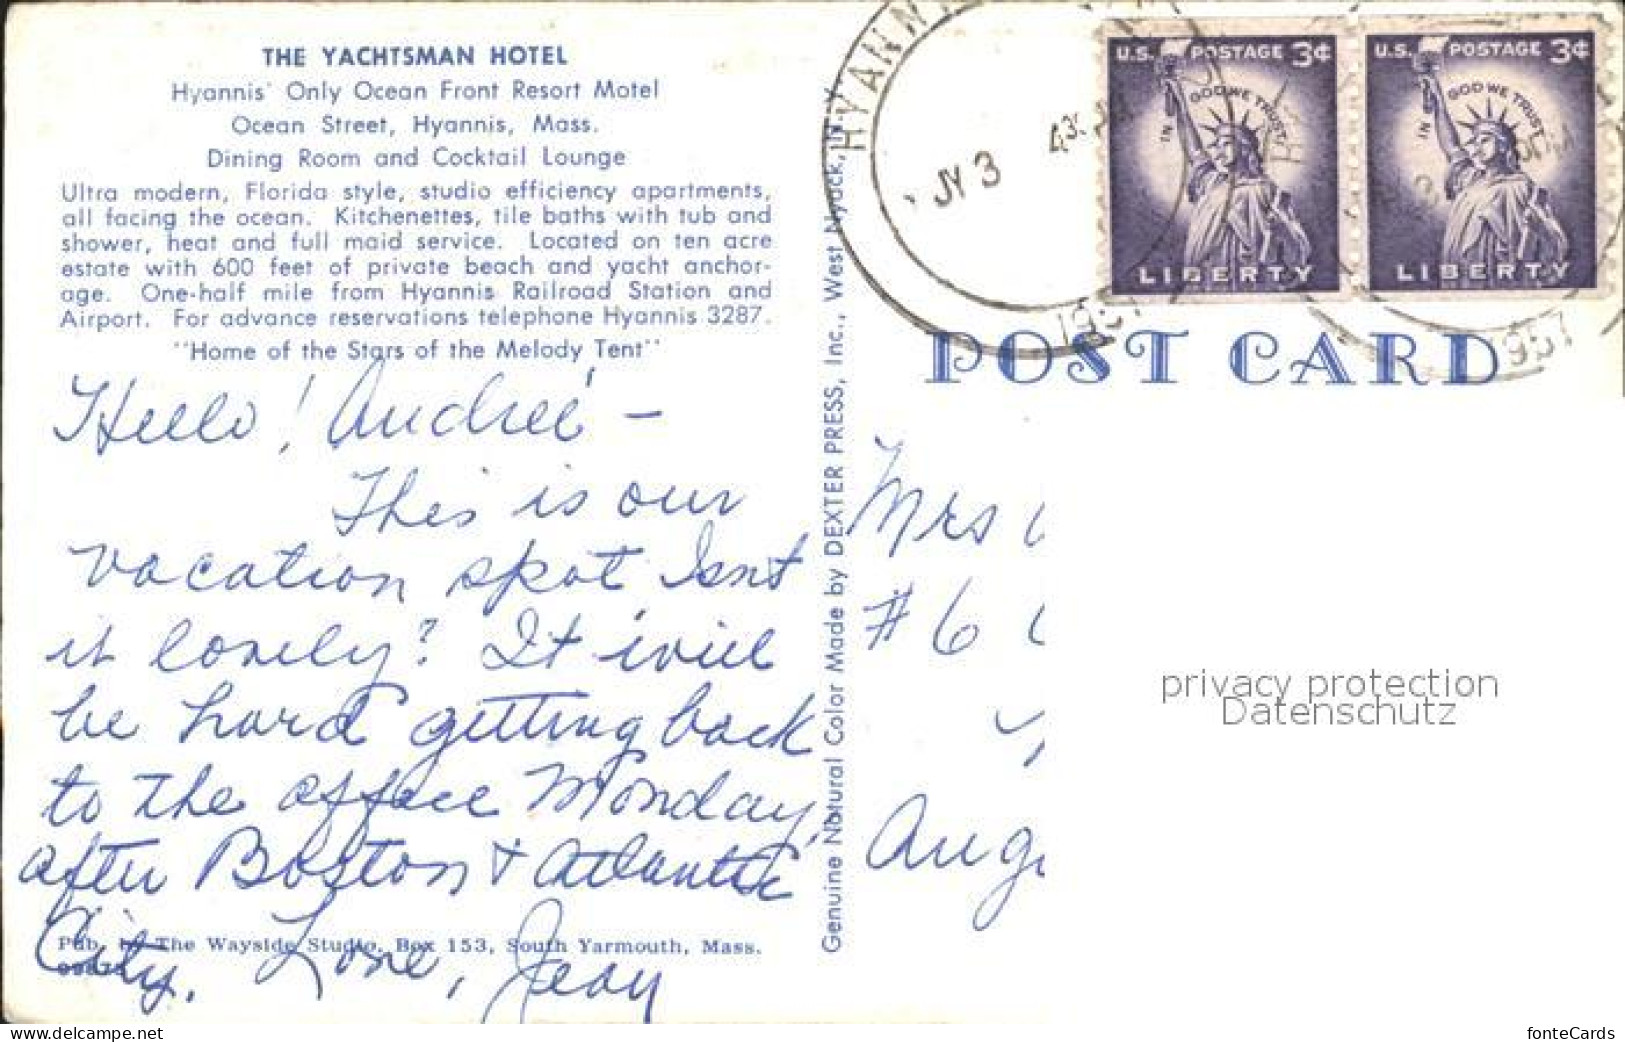 THE YACHTSMAN HOTEL
Hyannis' Only Ocean Front Resort Motel
Ocean Street, Hyannis, Mass.
Dining Room and Cocktail Lounge
Ultra modern, Florida style, studio efficiency apartments,
all facing the ocean. Kitchenettes, tile baths with tub and
shower, heat and full maid service. Located on ten acre
estate with 600 feet of private beach and yacht anchor-
age. One-half mile from Hyannis Railroad Station and
Airport. For advance reservations telephone Hyannis 3287.
"Home of the Stars of the Melody Tent"
Hello! Andreé -
This is our
vacation spot Isnt
it lovely? It will
be hard getting back
to the office Monday,
after Boston & Atlantic
City. Love, Jean
Pub. by The Wayside Studio, Box 153, South Yarmouth, Mass.
Genuine Natural Color Made by DEXTER PRESS, Inc., West Nyack, N.Y.
HYANN
JY 3
430
1957
U.S. POSTAGE 3¢
IN GOD WE TRUST
LIBERTY
U.S. POSTAGE 3¢
IN GOD WE TRUST
LIBERTY
1957
POST CARD
Mrs
#6
Aug
privacy protection
Datenschutz
www.delcampe.net
fonteCards